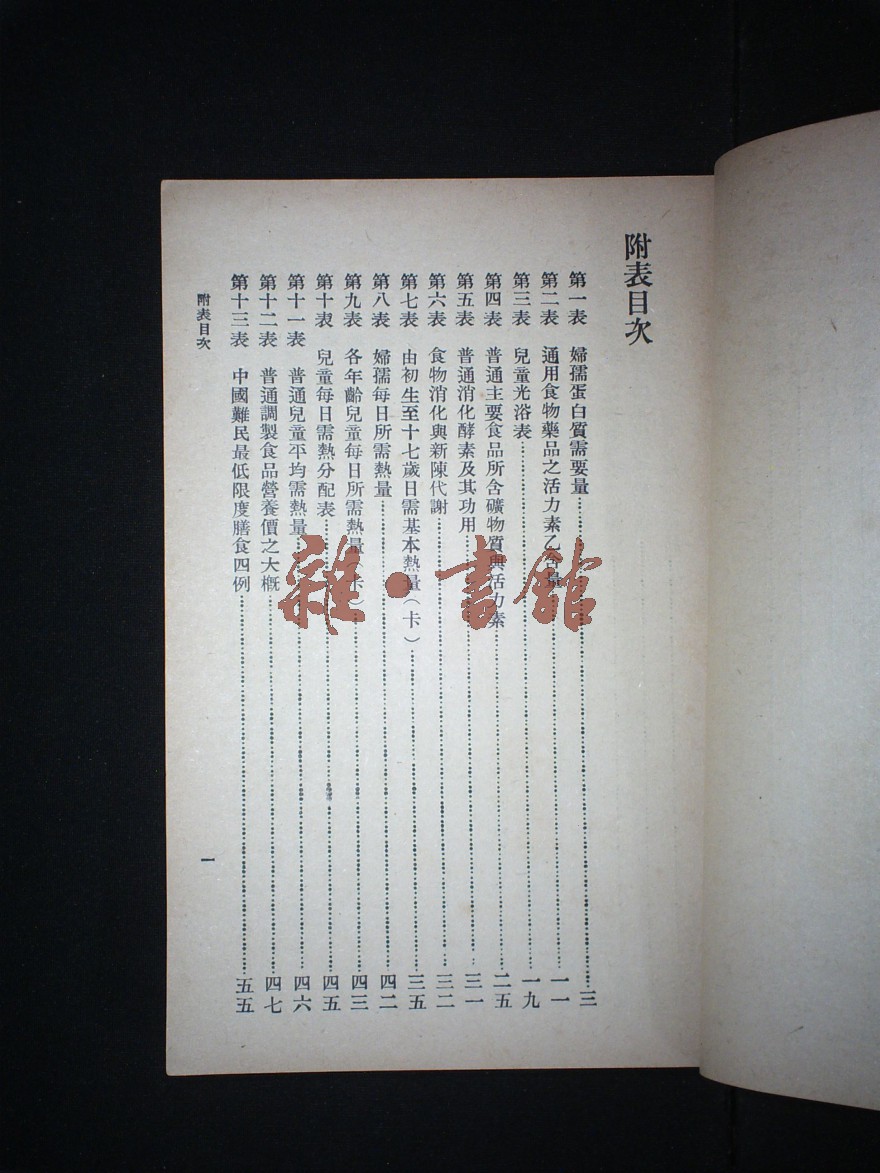 附表目次
第一表 婦孺蛋白質需要量……三
第二表 通用食物藥品之活力素乙含量……一一
第三表 兒童光浴表……一九
第四表 普通主要食品所含礦物質與活力素……二五
第五表 普通消化酵素及其功用……三一
第六表 食物消化與新陳代謝……三二
第七表 由初生至十七歲日需基本熱量(卡)……三五
第八表 婦孺每日所需熱量……四二
第九表 各年齡兒童每日所需熱量(卡)……四三
第十表 兒童每日需熱分配表……四五
第十一表 普通兒童平均需熱量……四六
第十二表 普通調製食品營養價之大概……四七
第十三表 中國難民最低限度膳食四例……五五
附表目次
一
雜·書館